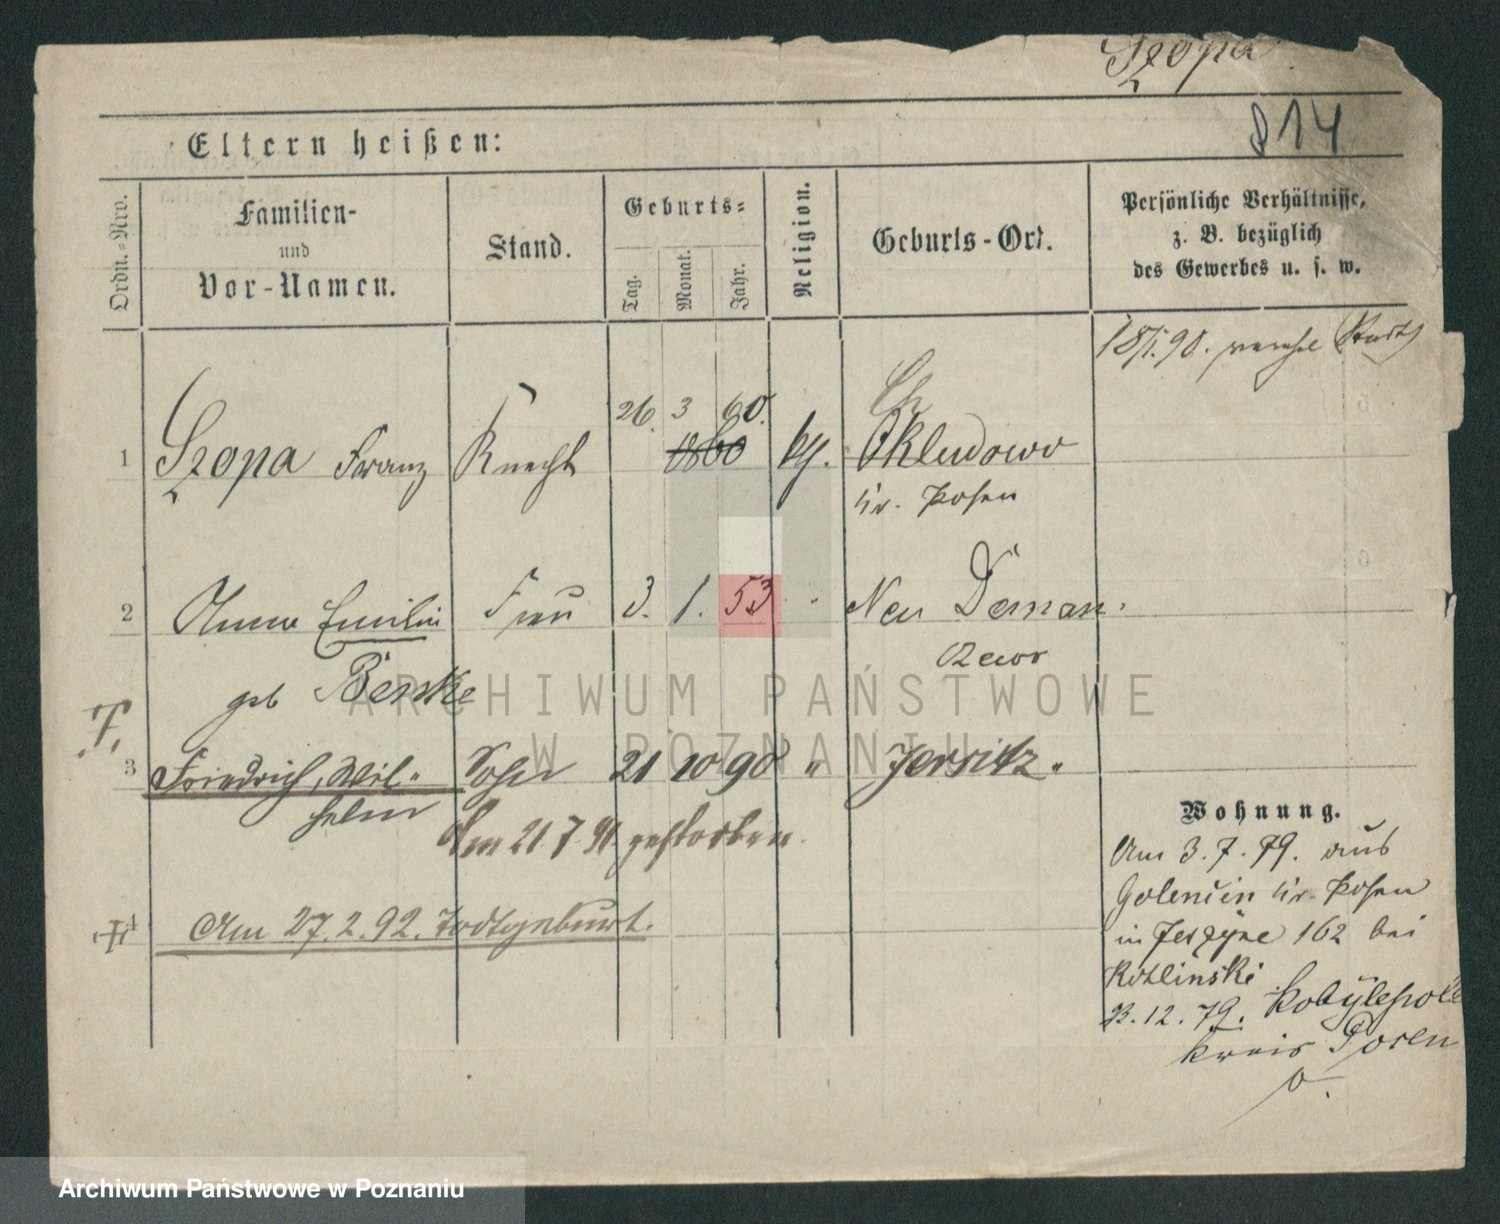 Szopa
814
Eltern heißen:
Ordn.=Nro.
Familien-
und
Vor-Namen.
Stand.
Geburts=
Tag.
Monat.
Jahr.
Religion.
Geburts-Ort.
Persönliche Verhältnisse,
z. B. bezüglich
des Gewerbes u. s. w.
18/1.90.
26. 3 60.
1 Szopa Franz Knecht 1860 kth. Chludowo
Kr. Posen
2 Anna Emilie Frau 3. 1. 53 " Neu Deman.
geb Benske
3 Friedrich, Wil- Sohn 21 10 90 " Jersitz.
helm
Am 21.7.91 gestorben.
4 Am 27.2.92. Todtgeburt.
Wohnung.
Am 3.7.79. aus
Golencin Kr. Posen
in Jerzyce 162 bei
Kozlinski
12.79. Kobylepole
Kreis Posen
ARCHIWUM PAŃSTWOWE
W POZNANIU
Archiwum Państwowe w Poznaniu